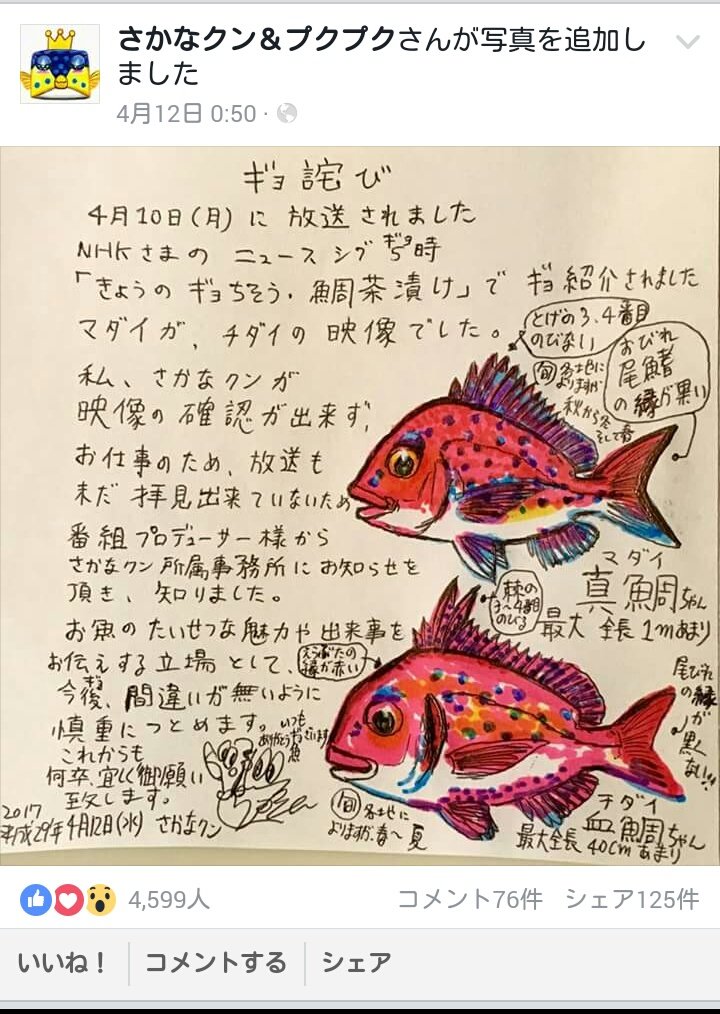 さかなクン＆プクプクさんが写真を追加し
ました
4月12日 0:50
ギョ詫び
4月10日(月)に放送されました
NHKさまのニュースシブ5時
ギョ
「きょうのギョちそう・鯛茶漬け」でギョ紹介されました
マダイが、チダイの映像でした。
私、さかなクンが
映像の確認が出来ず、
お仕事のため、放送も
未だ拝見出来ていないため
番組プロデューサー様から
さかなクン所属事務所にお知らせを
頂き、知りました。
お魚のたいせつな魅力や出来事を
お伝えする立場として、
今後、間違いが無いように
慎重につとめます。
これからも
何卒、宜しく御願い
致します。
2017
平成29年4月12日(水) さかなクン
いつも
ありがとうギョざいます
魚
とげの3、4番目
のびない
旬 各地に
よりますが
秋から冬
そして春
おびれ
尾鰭
の縁が黒い
マダイ
真鯛ちゃん
最大 全長 1mあまり
棘の
3〜4番目
のびる
えらぶたの
縁が赤い
尾びれ
の縁
が
黒く
ない!!
旬 各地に
よりますが、春〜夏
チダイ
血鯛ちゃん
最大全長 40cmあまり
4,599人
コメント76件 シェア125件
いいね！ コメントする シェア